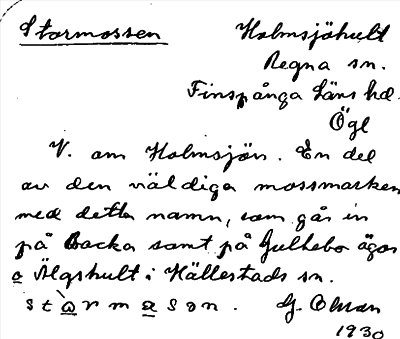 Stormossen
Holmsjöhult
Regna sn.
Finspånga läns hd.
Ögl
V. om Holmsjön. En del
av den väldiga mossmarken
med detta namn, som går in
på Backa samt på Gulhebo ägor
o Älgshult i Hällestads sn.
stòrmasan.
G. Olson
1930